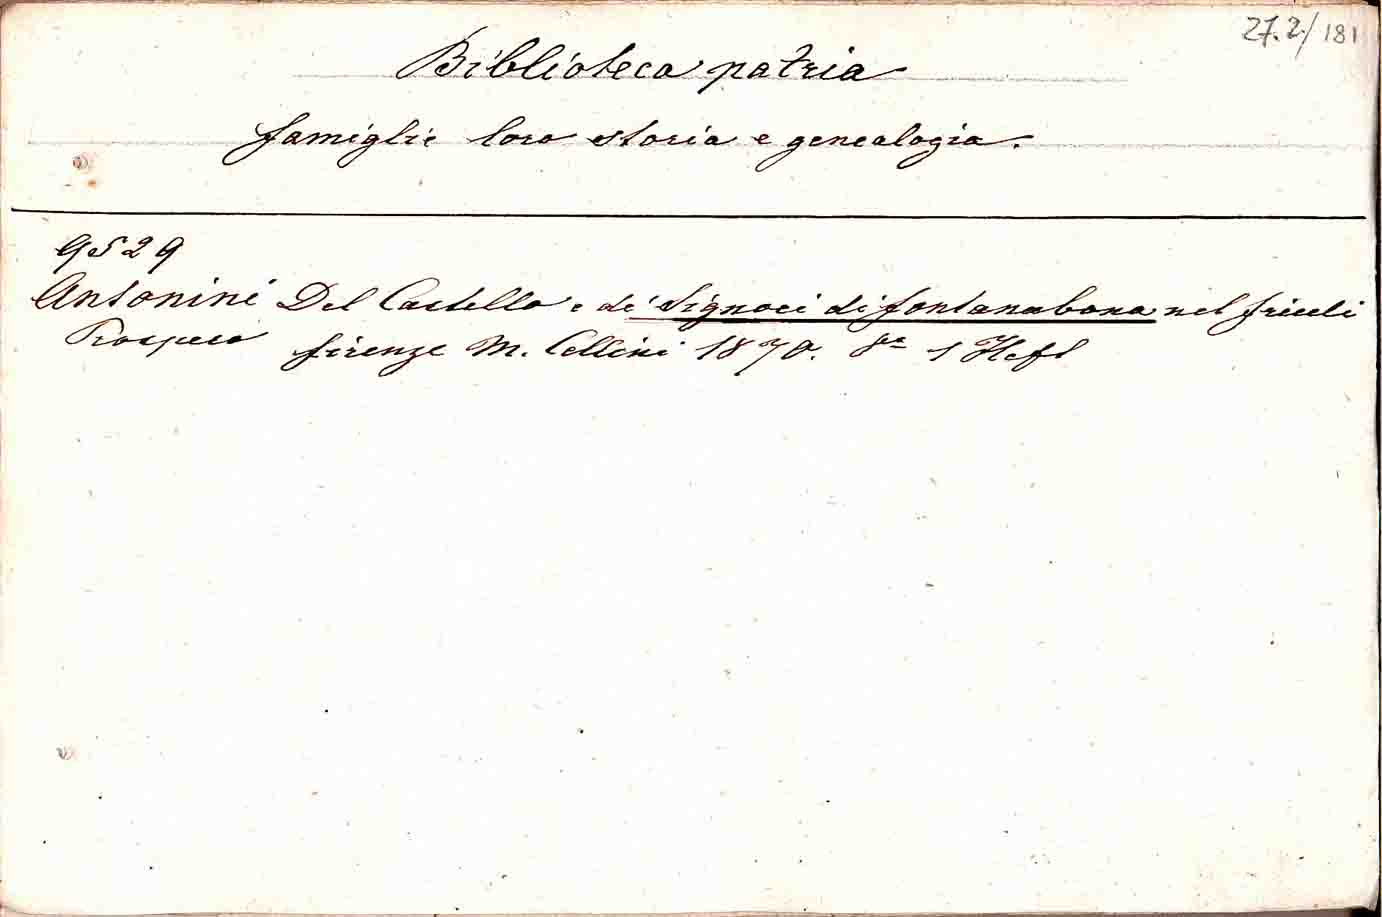 27.2./181
Biblioteca patria
famiglie loro storia e genealogia.
9529
Antonini Del Castello e de' Signori di fontanabona nel friuli
Prospero firenze M. Cellini 1870. 8º 1 Heft